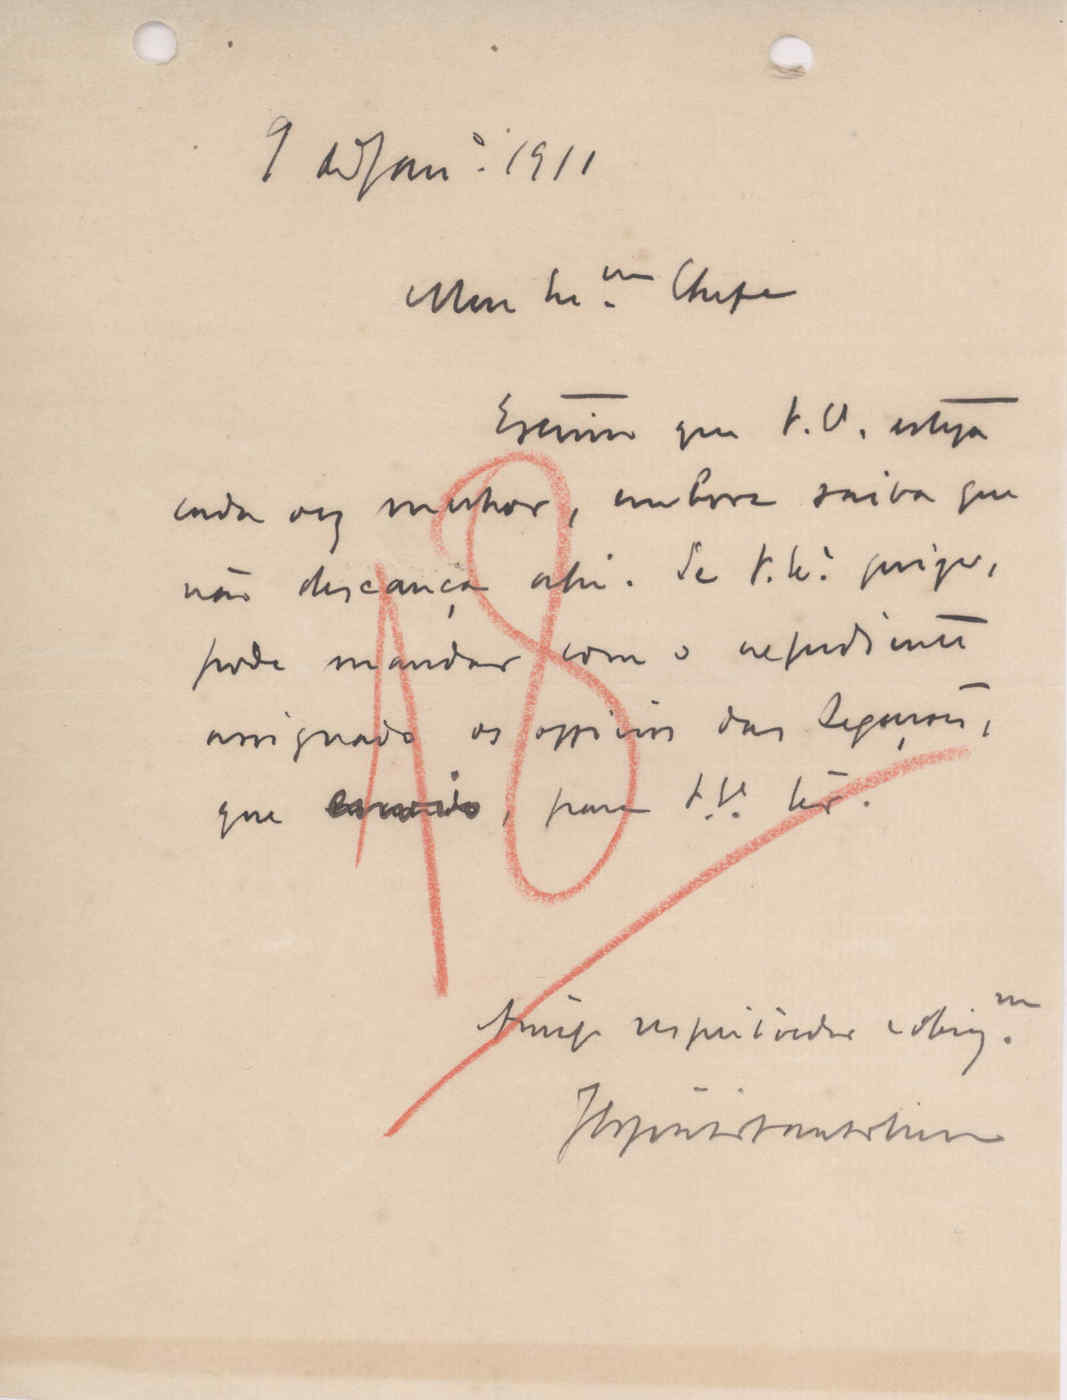 9 de Janº. 1911
Meu Exmº. Chefe
Estimo que V. Ex. esteja
cada vez melhor, embora saiba que
não descança ahi. Se V. Ex. quizer,
pode mandar com o expediente
assignado os officios das Legações,
que envio, para V. Ex. ler.
Amigo respeitador e obrigm.
A8